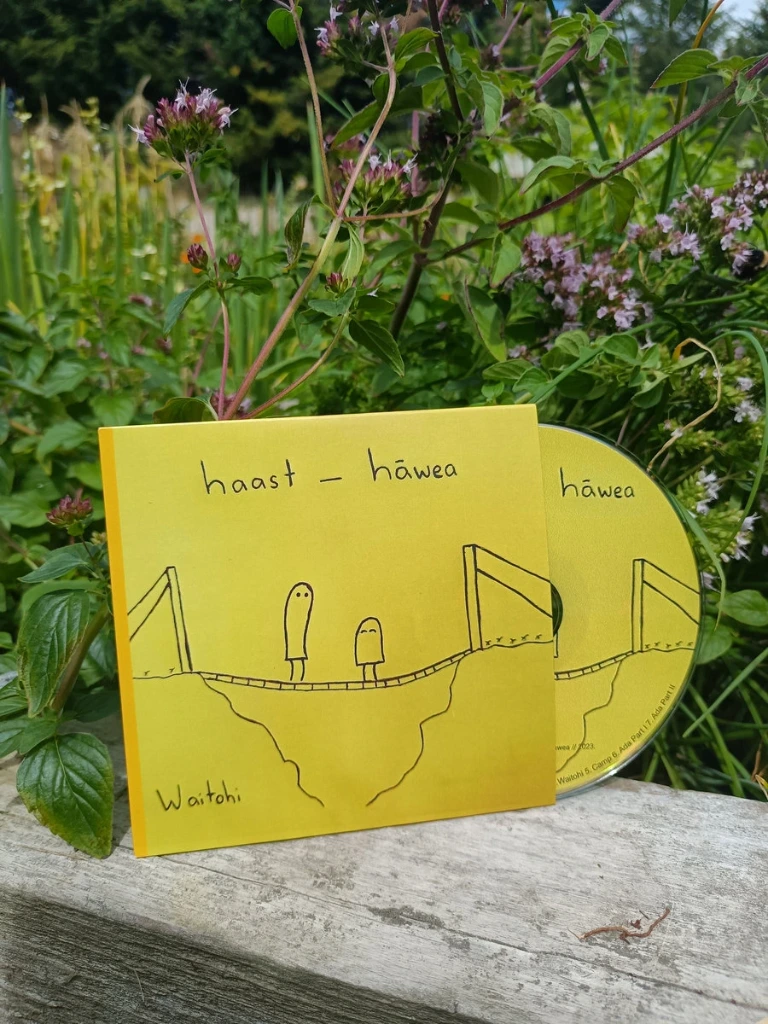 haast – hāwea
Waitohi
hāwea
wea // 2023.
Waitohi 5. Camp 6. Ada Part I 7. Ada Part II